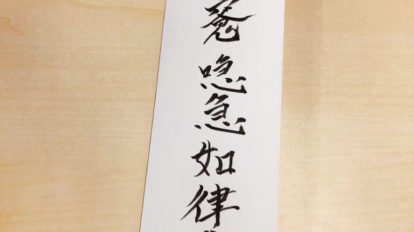 喼急如律